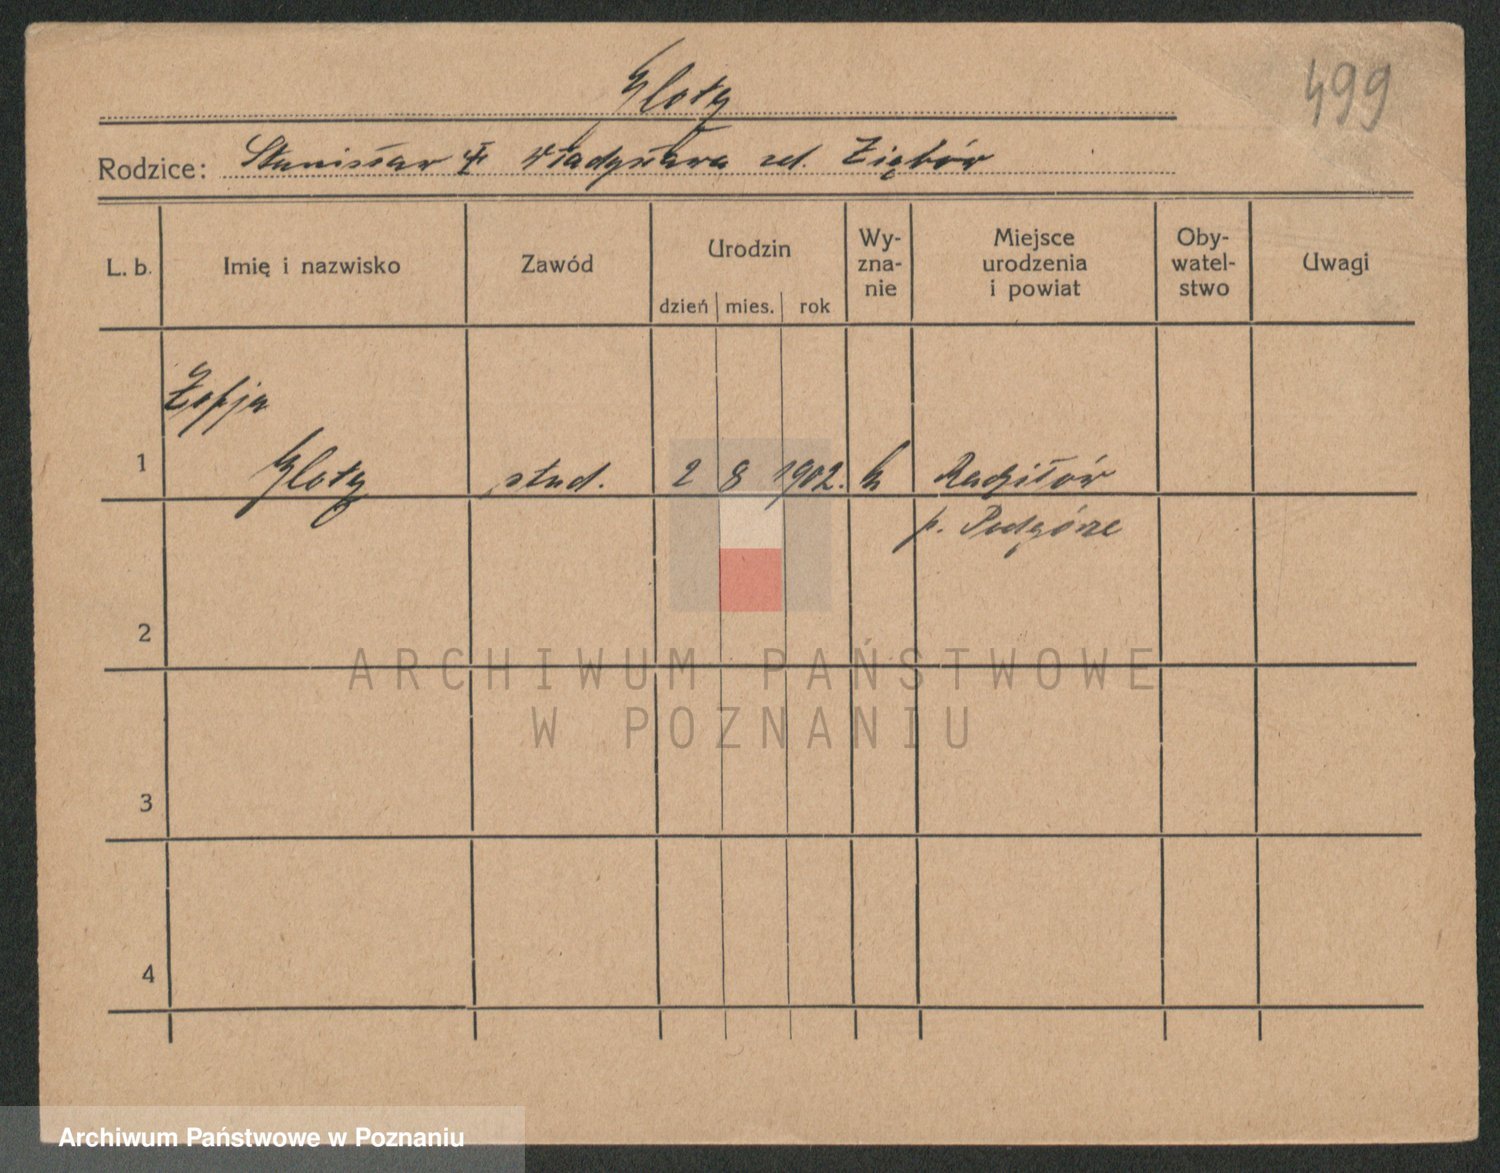 Gloty
499
Rodzice: Stanisław i Władysława zd. Ziębów
L. b.
Imię i nazwisko
Zawód
Urodzin
dzień mies. rok
Wy-
zna-
nie
Miejsce
urodzenia
i powiat
Oby-
watel-
stwo
Uwagi
Zofja
1 Gloty stud. 2 8 1902. k Radziłów
p. Podgórze
2
3
4
ARCHIWUM PAŃSTWOWE
W POZNANIU
Archiwum Państwowe w Poznaniu